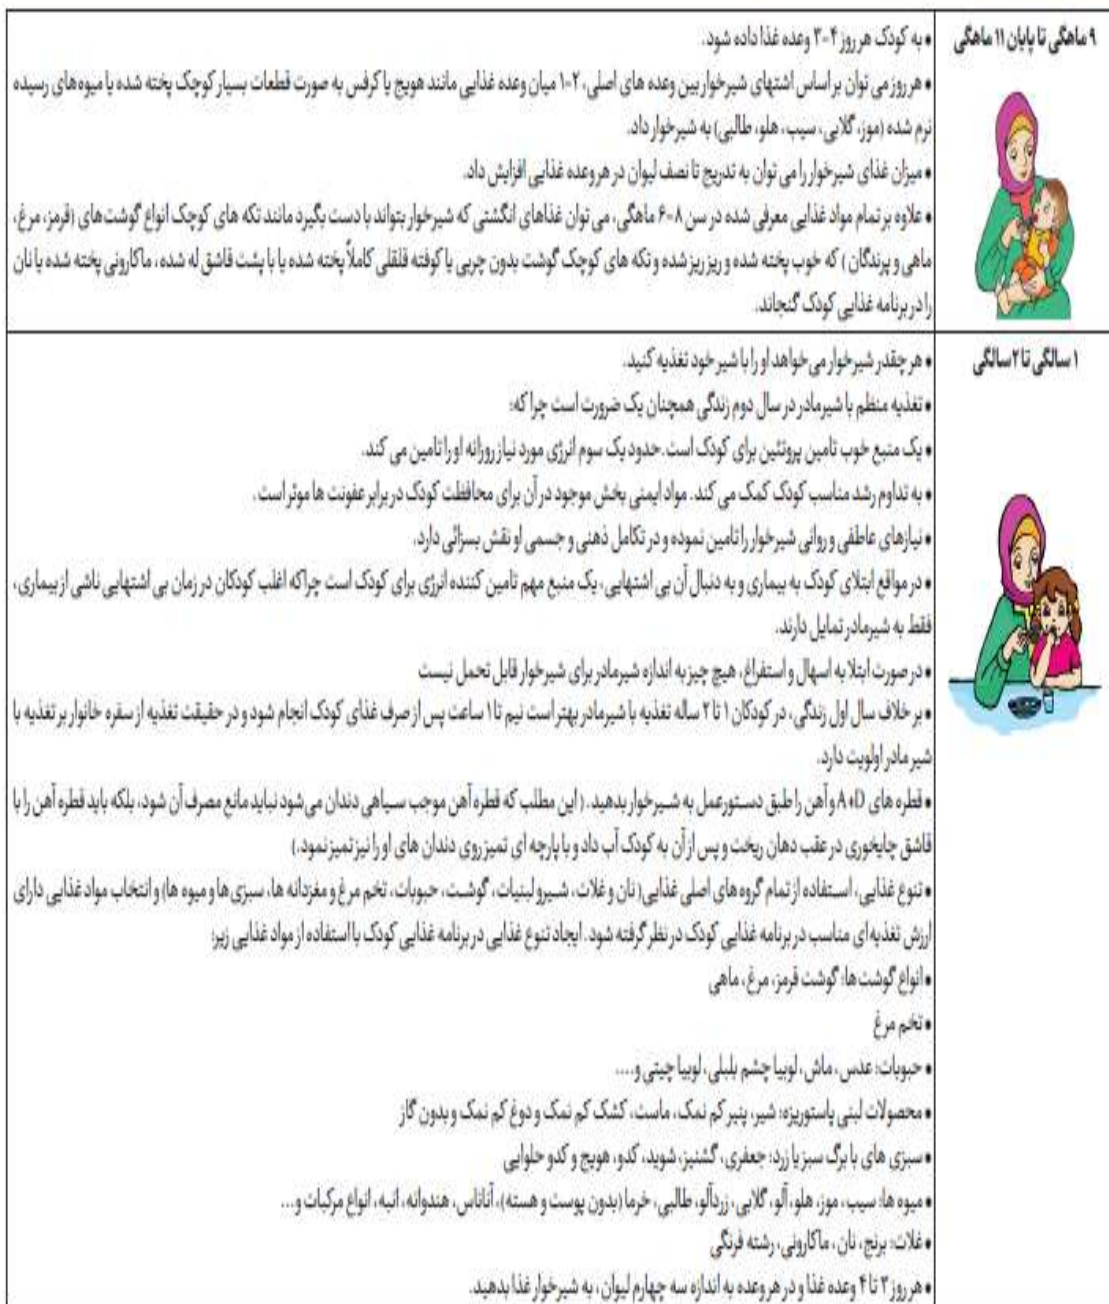 ۹ ماهگی تا پایان ۱۱ ماهگی
• به کودک هر روز ۴-۳ وعده غذا داده شود.
• هر روز می توان بر اساس اشتهای شیرخوار بین وعده های اصلی، ۲-۱ میان وعده غذایی مانند هویج یا کرفس به صورت قطعات بسیار کوچک پخته شده یا میوه های رسیده
نرم شده (موز، گلابی، سیب، هلو، طالبی) به شیرخوار داد.
• میزان غذای شیرخوار را می توان به تدریج تا نصف لیوان در هر وعده غذایی افزایش داد.
• علاوه بر تمام مواد غذایی معرفی شده در سن ۸-۶ ماهگی، می توان غذاهای انگشتی که شیرخوار بتواند با دست بگیرد مانند تکه های کوچک انواع گوشت های (قرمز، مرغ،
ماهی و پرندگان ) که خوب پخته شده و ریز ریز شده و تکه های کوچک گوشت بدون چربی یا کوفته قلقلی کاملاً پخته شده یا با پشت قاشق له شده، ماکارونی پخته شده یا نان
را در برنامه غذایی کودک گنجاند.
۱ سالگی تا ۲ سالگی
• هر چقدر شیرخوار می خواهد او را با شیر خود تغذیه کنید.
• تغذیه منظم با شیرمادر در سال دوم زندگی همچنان یک ضرورت است چرا که:
• یک منبع خوب تامین پروتئین برای کودک است. حدود یک سوم انرژی مورد نیاز روزانه او را تامین می کند.
• به تداوم رشد مناسب کودک کمک می کند. مواد ایمنی بخش موجود در آن برای محافظت کودک در برابر عفونت ها موثر است.
• نیازهای عاطفی و روانی شیرخوار را تامین نموده و در تکامل ذهنی و جسمی او نقش بسزائی دارد.
• در مواقع ابتلای کودک به بیماری و به دنبال آن بی اشتهایی، یک منبع مهم تامین کننده انرژی برای کودک است چراکه اغلب کودکان در زمان بی اشتهایی ناشی از بیماری،
فقط به شیرمادر تمایل دارند.
• در صورت ابتلا به اسهال و استفراغ، هیچ چیز به اندازه شیرمادر برای شیرخوار قابل تحمل نیست
• بر خلاف سال اول زندگی، در کودکان ۱ تا ۲ ساله تغذیه با شیرمادر بهتر است نیم تا ۱ ساعت پس از صرف غذای کودک انجام شود و در حقیقت تغذیه از سفره خانوار بر تغذیه با
شیر مادر اولویت دارد.
• قطره های A+D و آهن را طبق دستورعمل به شیرخوار بدهید. ( این مطلب که قطره آهن موجب سیاهی دندان می شود نباید مانع مصرف آن شود، بلکه باید قطره آهن را با
قاشق چایخوری در عقب دهان ریخت و پس از آن به کودک آب داد و با پارچه ای تمیز روی دندان های او را نیز تمیز نمود.)
• تنوع غذایی، استفاده از تمام گروه های اصلی غذایی( نان و غلات، شیر و لبنیات، گوشت، حبوبات، تخم مرغ و مغزدانه ها، سبزی ها و میوه ها) و انتخاب مواد غذایی دارای
ارزش تغذیه ای مناسب در برنامه غذایی کودک در نظر گرفته شود. ایجاد تنوع غذایی در برنامه غذایی کودک با استفاده از مواد غذایی زیر:
• انواع گوشت ها: گوشت قرمز، مرغ، ماهی
• تخم مرغ
• حبوبات: عدس، ماش، لوبیا چشم بلبلی، لوبیا چیتی و....
• محصولات لبنی پاستوریزه: شیر، پنیر کم نمک، ماست، کشک کم نمک و دوغ کم نمک و بدون گاز
• سبزی های با برگ سبز یا زرد: جعفری، گشنیز، شوید، کدو، هویج و کدو حلوایی
• میوه ها: سیب، موز، هلو، آلو، گلابی، زردآلو، طالبی، خرما (بدون پوست و هسته)، آناناس، هندوانه، انبه، انواع مرکبات و...
• غلات: برنج، نان، ماکارونی، رشته فرنگی
• هر روز ۳ تا ۴ وعده غذا و در هر وعده به اندازه سه چهارم لیوان، به شیرخوار غذا بدهید.